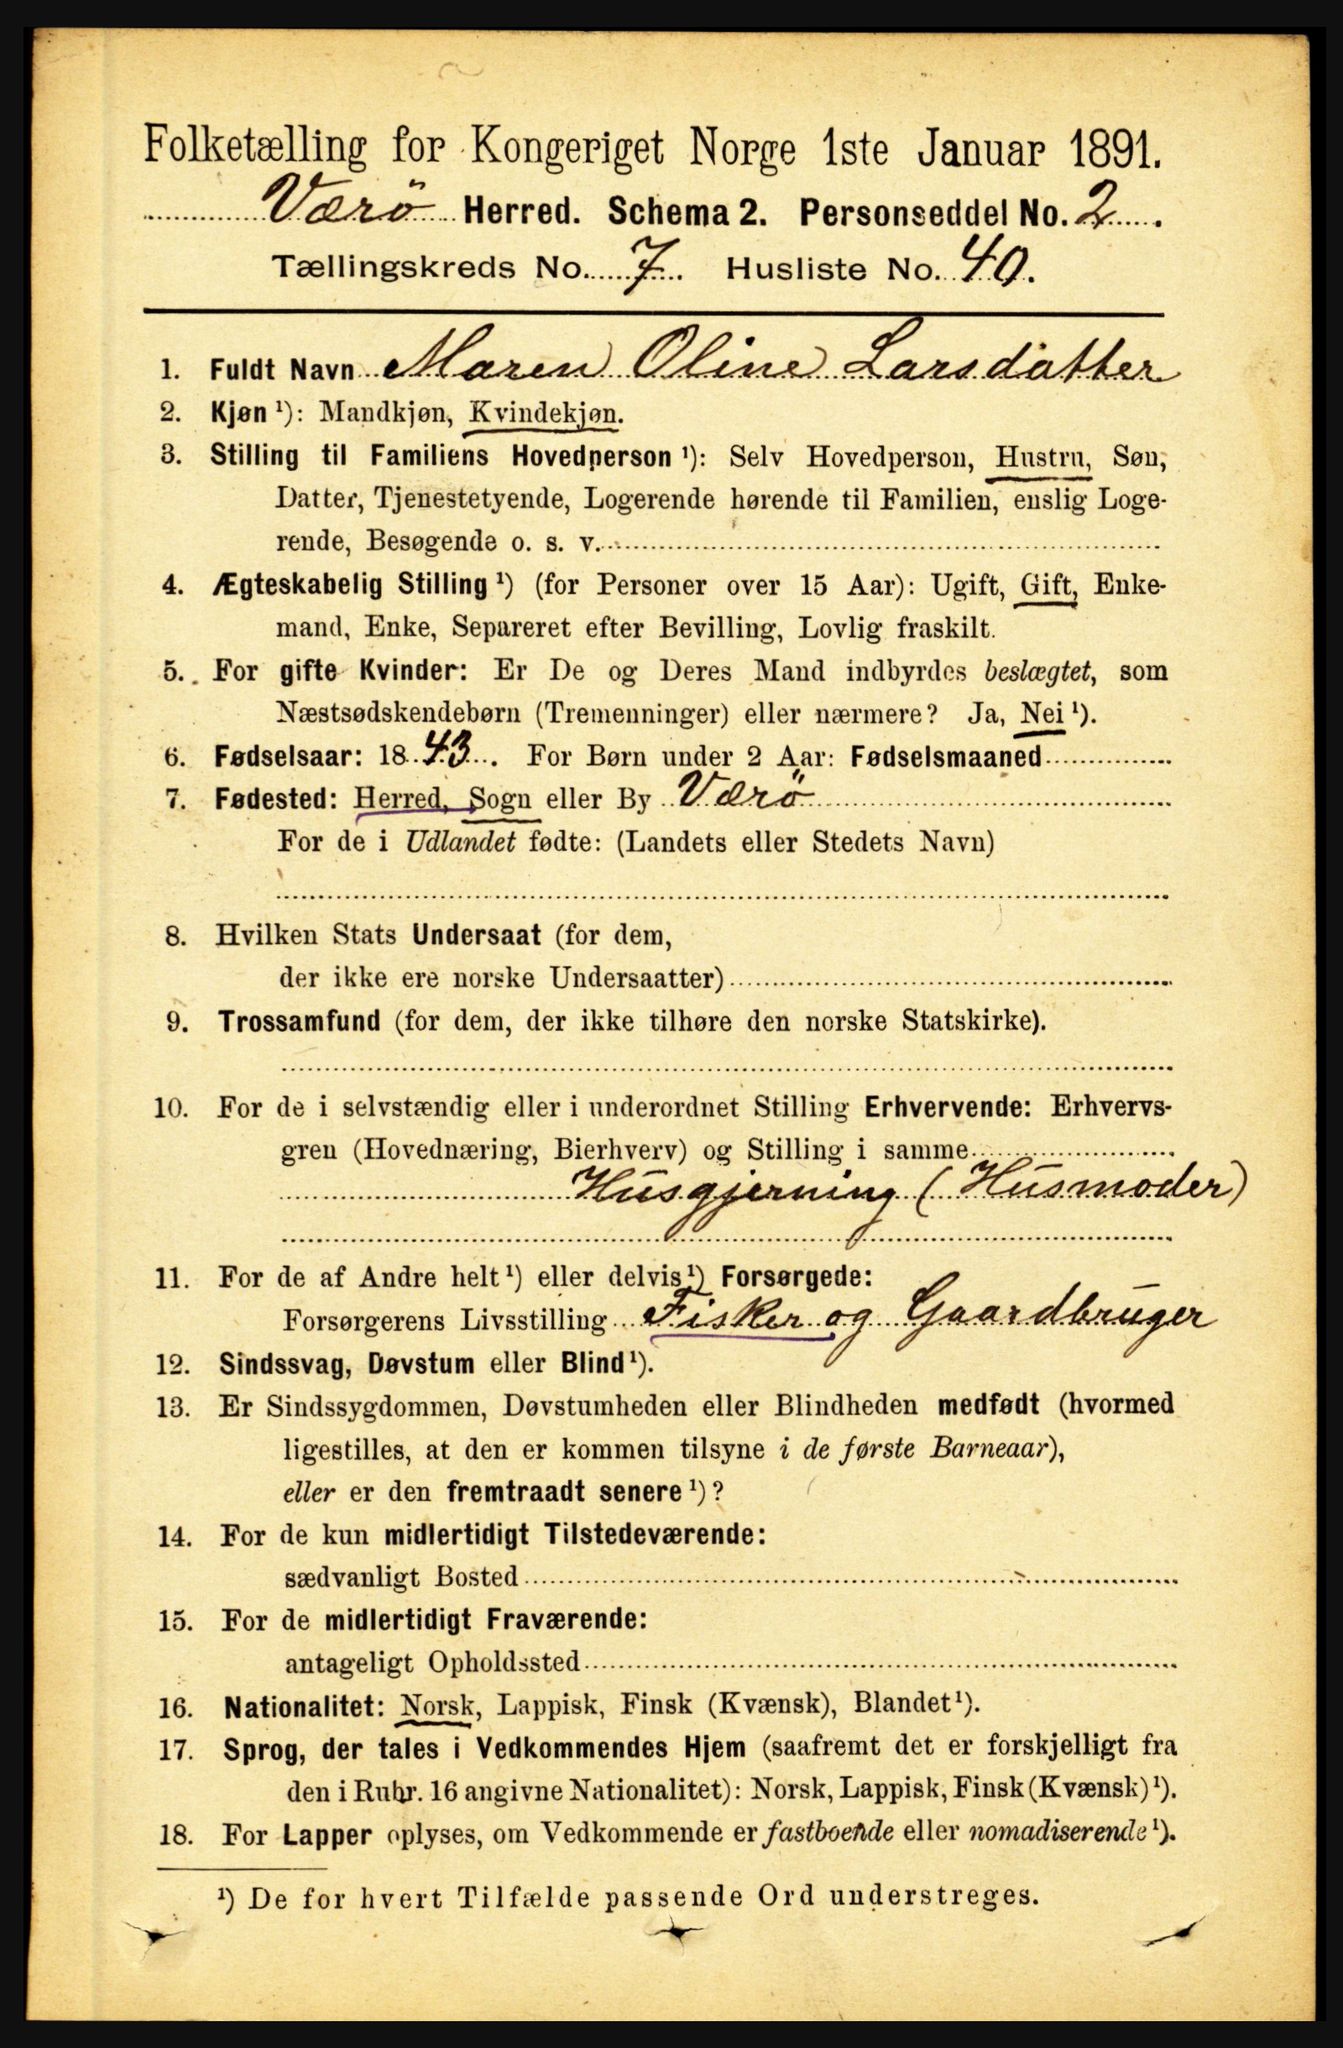 Folketælling for Kongeriget Norge 1ste Januar 1891.
Værö Herred. Schema 2. Personseddel No. 2.
Tællingskreds No. 7. Husliste No. 40.
1. Fuldt Navn Maren Oline Larsdatter
2. Kjøn ¹): Mandkjøn, Kvindekjøn.
3. Stilling til Familiens Hovedperson ¹): Selv Hovedperson, Hustru, Søn,
Datter, Tjenestetyende, Logerende hørende til Familien, enslig Loge-
rende, Besøgende o. s. v.
4. Ægteskabelig Stilling ¹) (for Personer over 15 Aar): Ugift, Gift, Enke-
mand, Enke, Separeret efter Bevilling, Lovlig fraskilt.
5. For gifte Kvinder: Er De og Deres Mand indbyrdes beslægtet, som
Næstsødskendebørn (Tremenninger) eller nærmere? Ja, Nei ¹).
6. Fødselsaar: 1843. For Børn under 2 Aar: Fødselsmaaned
7. Fødested: Herred, Sogn eller By Værö
For de i Udlandet fødte: (Landets eller Stedets Navn)
8. Hvilken Stats Undersaat (for dem,
der ikke ere norske Undersaatter)
9. Trossamfund (for dem, der ikke tilhøre den norske Statskirke).
10. For de i selvstændig eller i underordnet Stilling Erhvervende: Erhvervs-
gren (Hovednæring, Bierhverv) og Stilling i samme
Husgjerning (Husmoder)
11. For de af Andre helt ¹) eller delvis ¹) Forsørgede:
Forsørgerens Livsstilling Fisker og Gaardbruger
12. Sindssvag, Døvstum eller Blind ¹).
13. Er Sindssygdommen, Døvstumheden eller Blindheden medfødt (hvormed
ligestilles, at den er kommen tilsyne i de første Barneaar),
eller er den fremtraadt senere ¹)?
14. For de kun midlertidigt Tilstedeværende:
sædvanligt Bosted
15. For de midlertidigt Fraværende:
antageligt Opholdssted
16. Nationalitet: Norsk, Lappisk, Finsk (Kvænsk), Blandet ¹).
17. Sprog, der tales i Vedkommendes Hjem (saafremt det er forskjelligt fra
den i Rubr. 16 angivne Nationalitet): Norsk, Lappisk, Finsk (Kvænsk) ¹).
18. For Lapper oplyses, om Vedkommende er fastboende eller nomadiserende ¹).
¹) De for hvert Tilfælde passende Ord understreges.